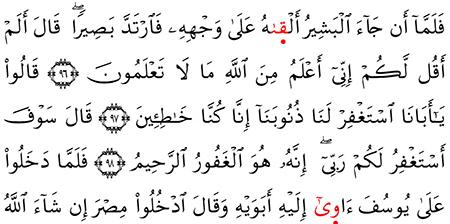 فَلَمَّآ أَن جَآءَ ٱلْبَشِيرُ أَلْقىٰهُ عَلَىٰ وَجْهِهِۦ فَٱرْتَدَّ بَصِيرًاۖ قَالَ أَلَمْ
أَقُل لَّكُمْ إِنِّىٓ أَعْلَمُ مِنَ ٱللَّهِ مَا لَا تَعْلَمُونَ ﴿٩٦﴾ قَالُوا۟
يَٰٓأَبَانَا ٱسْتَغْفِرْ لَنَا ذُنُوبَنَآ إِنَّا كُنَّا خَٰطِـِٔينَ ﴿٩٧﴾ قَالَ سَوْفَ
أَسْتَغْفِرُ لَكُمْ رَبِّىٓۖ إِنَّهُۥ هُوَ ٱلْغَفُورُ ٱلرَّحِيمُ ﴿٩٨﴾ فَلَمَّا دَخَلُوا۟
عَلَىٰ يُوسُفَ ءَاوِىٰٓ إِلَيْهِ أَبَوَيْهِ وَقَالَ ٱدْخُلُوا۟ مِصْرَ إِن شَآءَ ٱللَّهُ